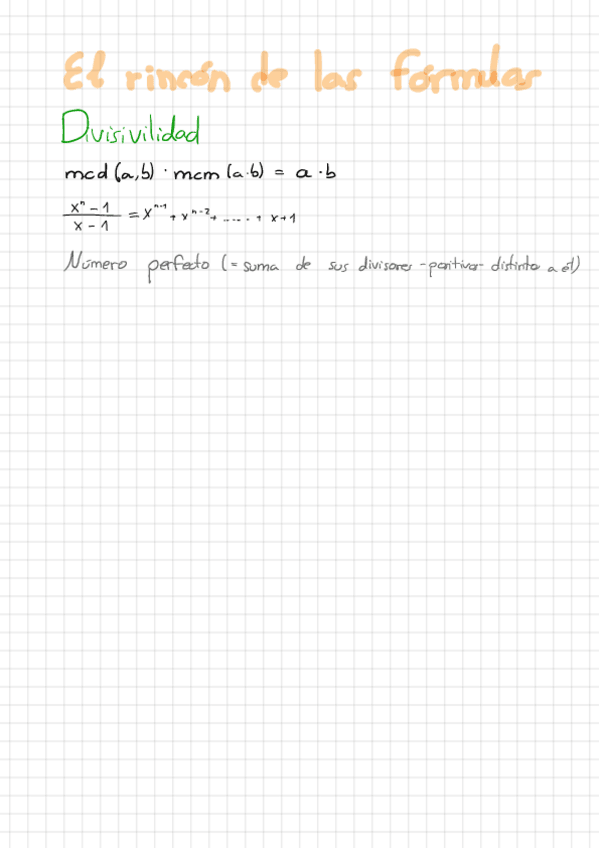 El rincón de las fórmulas
Divisivilidad
mcd (a,b) · mcm (a·b) = a · b
xⁿ - 1 / x - 1 = xⁿ⁻¹ + xⁿ⁻² + ..... + x + 1
Número perfecto (= suma de sus divisores - positivos - distinto a él)